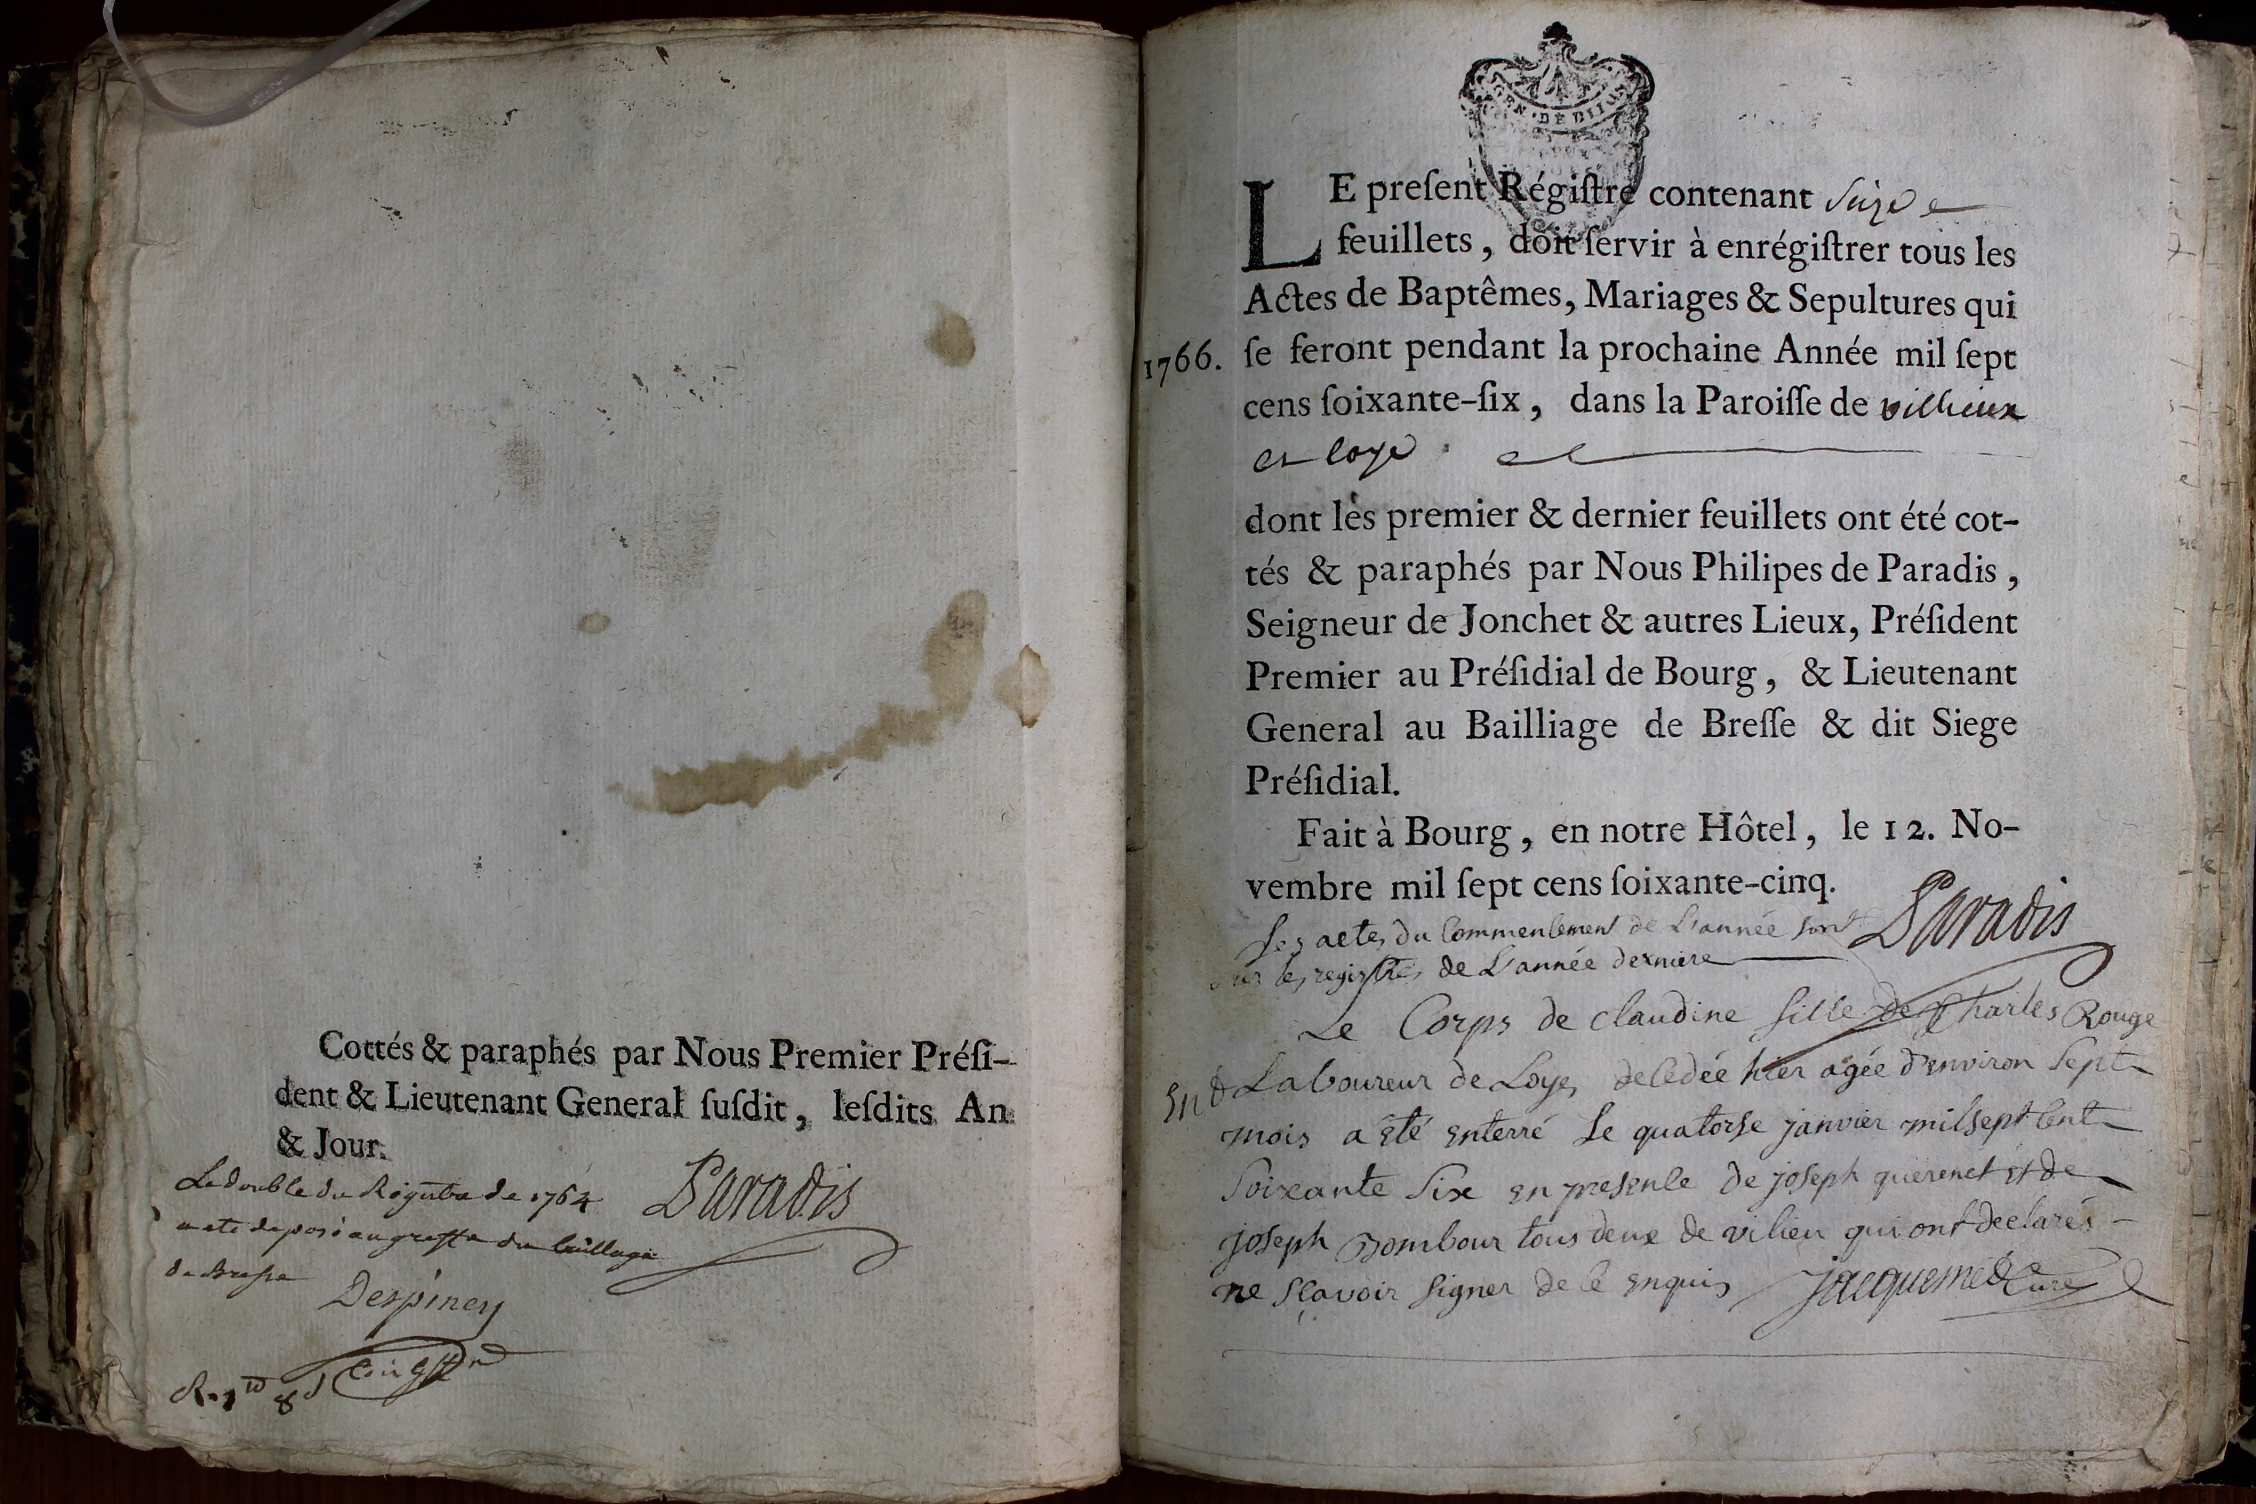 Cottés & paraphés par Nous Premier Préſi-
dent & Lieutenant General ſuſdit, leſdits An
& Jour.
Le double du Régistre de 1764
a eté deposé au greffe du bailliage
de Bresse
Paradis
Despiney
GEN·DE DIJON
LE preſent Régiſtre contenant seize
feuillets, doit ſervir à enrégiſtrer tous les
Actes de Baptêmes, Mariages & Sepultures qui
1766. ſe feront pendant la prochaine Année mil ſept
cens ſoixante-ſix, dans la Paroiſſe de villieux
et loye
dont les premier & dernier feuillets ont été cot-
tés & paraphés par Nous Philipes de Paradis,
Seigneur de Jonchet & autres Lieux, Préſident
Premier au Préſidial de Bourg, & Lieutenant
General au Bailliage de Breſſe & dit Siege
Préſidial.
Fait à Bourg, en notre Hôtel, le 12. No-
vembre mil ſept cens ſoixante-cinq.
Paradis
Les actes du commencement de L'année sont
sur les registres de L'année derniere
Le Corps de claudine fille de Charles Rouge
Laboureur de Loyes decedée hier agée d'environ sept
mois a été enterré Le quatorse janvier mil sept cent
soixante six en presence de joseph querenet et de
joseph Dombour tous deux de vilieu qui ont declarés
ne sçavoir signer de ce enquis jacquemet Curé